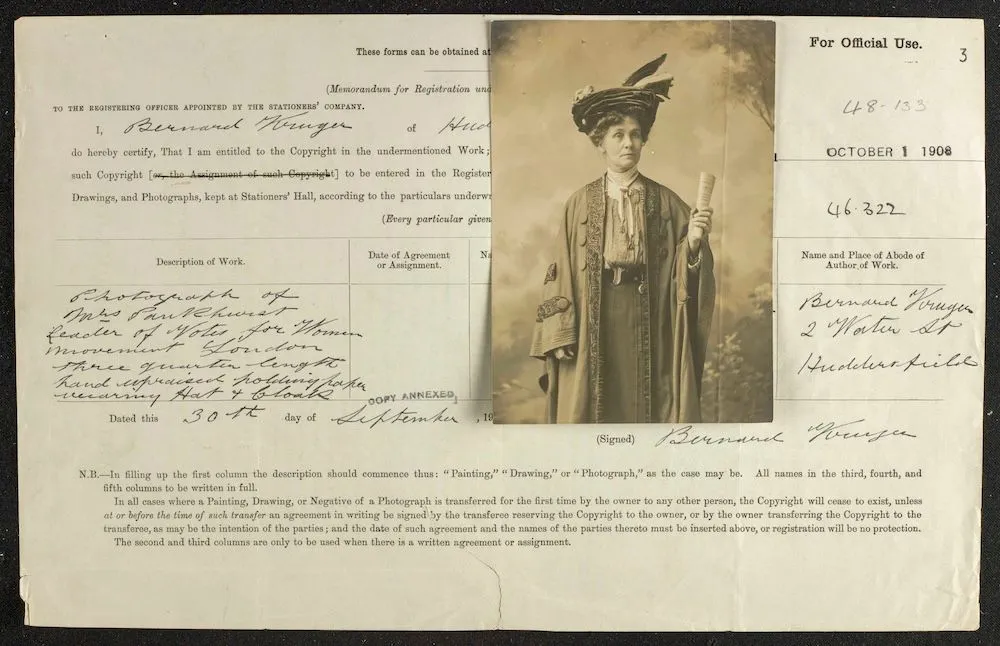 These forms can be obtained at
For Official Use.
3
(Memorandum for Registration und
TO THE REGISTERING OFFICER APPOINTED BY THE STATIONERS' COMPANY.
48-133
I, Bernard Kruger of Hud
do hereby certify, That I am entitled to the Copyright in the undermentioned Work;
OCTOBER 1 1908
such Copyright [or, the Assignment of such Copyright] to be entered in the Register
Drawings, and Photographs, kept at Stationers' Hall, according to the particulars underw
46.322
(Every particular given
Description of Work.
Date of Agreement
or Assignment.
Na
Name and Place of Abode of
Author of Work.
Photograph of
Mrs Pankhurst
Leader of Votes for Women
movement London
three quarter length
hand upraised holding paper
wearing Hat & Cloak
Bernard Kruger
2 Water St
Huddersfield
COPY ANNEXED
Dated this 30th day of September, 19
(Signed) Bernard Kruger
N.B.—In filling up the first column the description should commence thus: "Painting," "Drawing," or "Photograph," as the case may be. All names in the third, fourth, and
fifth columns to be written in full.
In all cases where a Painting, Drawing, or Negative of a Photograph is transferred for the first time by the owner to any other person, the Copyright will cease to exist, unless
at or before the time of such transfer an agreement in writing be signed by the transferee reserving the Copyright to the owner, or by the owner transferring the Copyright to the
transferee, as may be the intention of the parties; and the date of such agreement and the names of the parties thereto must be inserted above, or registration will be no protection.
The second and third columns are only to be used when there is a written agreement or assignment.